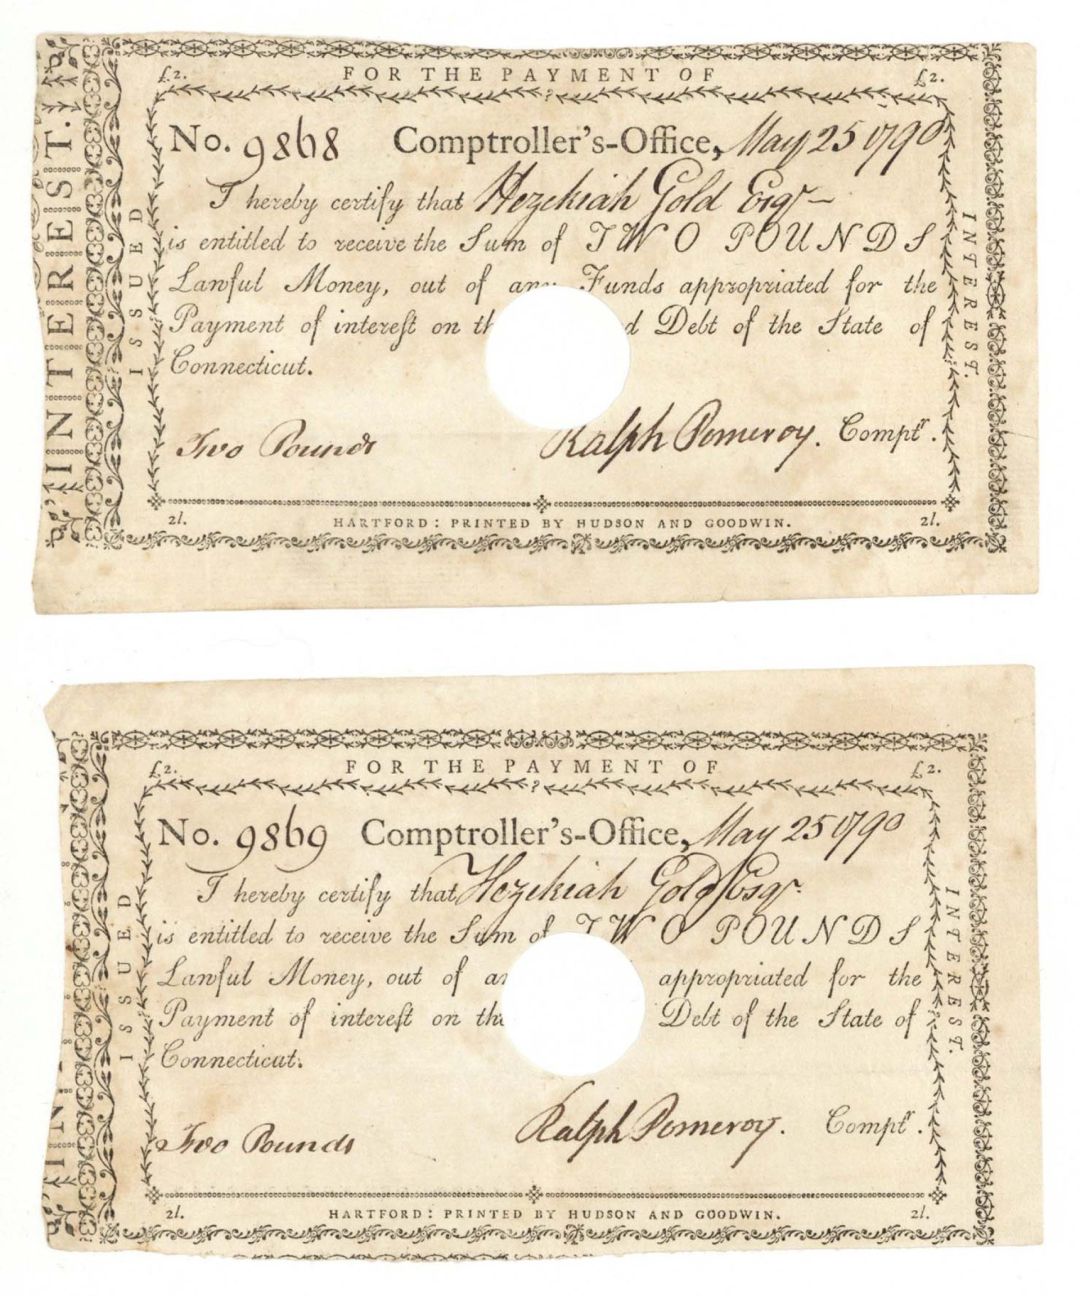 £2. FOR THE PAYMENT OF £2.
INTEREST.
ISSUED
INTEREST.
No. 9868 Comptroller's-Office, May 25 1790
I hereby certify that Hezekiah Gold Esqr
is entitled to receive the Sum of TWO POUNDS
Lawful Money, out of any Funds appropriated for the
Payment of intereſt on Debt of the State of
Connecticut.
Two Pounds Ralph Pomeroy. Comptr.
2l. HARTFORD: PRINTED BY HUDSON AND GOODWIN. 2l.
£2. FOR THE PAYMENT OF £2.
IN
ISSUED
INTEREST.
No. 9869 Comptroller's-Office, May 25 1790
I hereby certify that Hezekiah Gold Esqr
is entitled to receive the Sum of TWO POUNDS
Lawful Money, out of appropriated for the
Payment of intereſt on the Debt of the State of
Connecticut.
Two Pounds Ralph Pomeroy. Comptr.
2l. HARTFORD: PRINTED BY HUDSON AND GOODWIN. 2l.